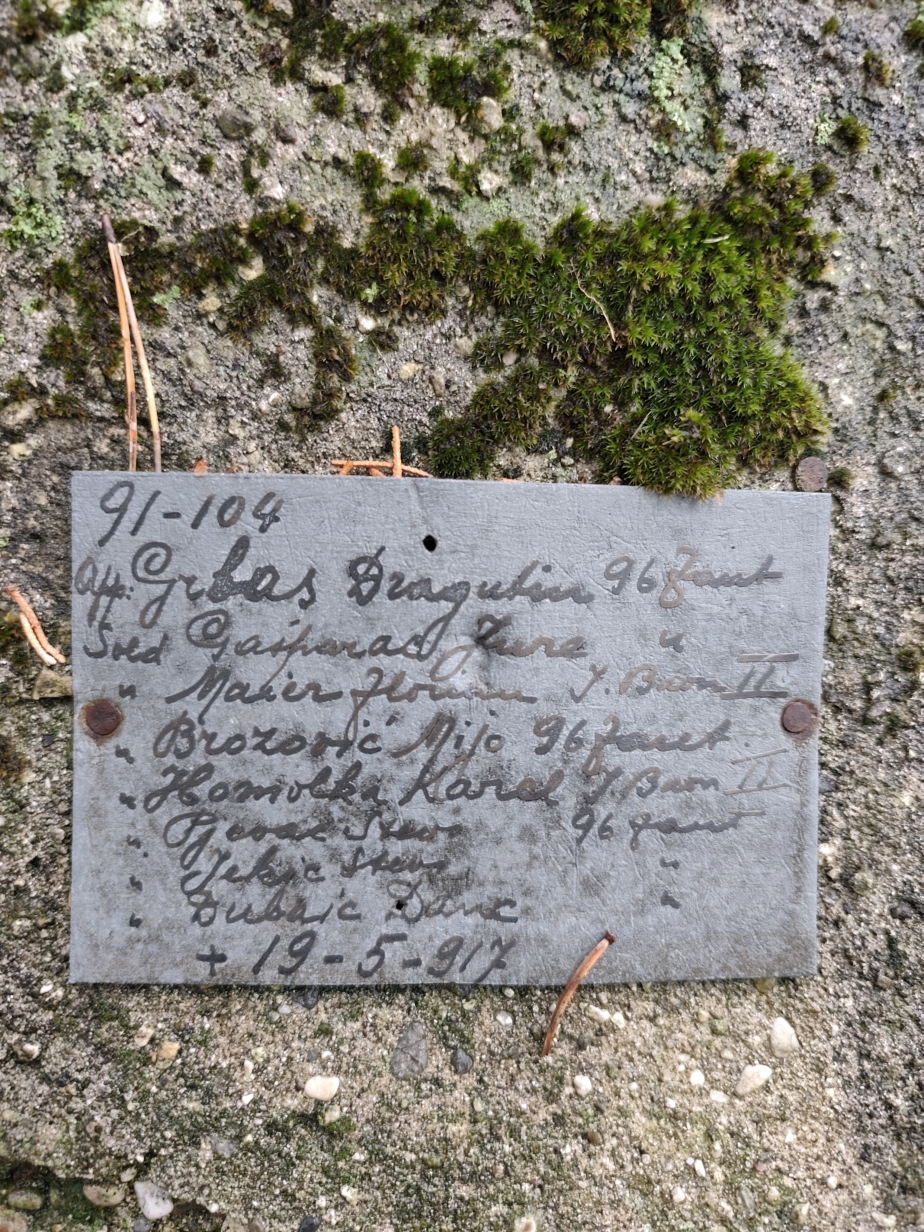 91-104
Off. Grbas Dragutin 96 fant
Sold Gasparac Jura "
" Maier Florian J. Baon II.
" Brozović Mijo 96 fant.
" Homolka Karel J. Baon II
" Stevo 96 fant
" Jekić Stevo "
" Dubaic Dane "
+ 19-5-917